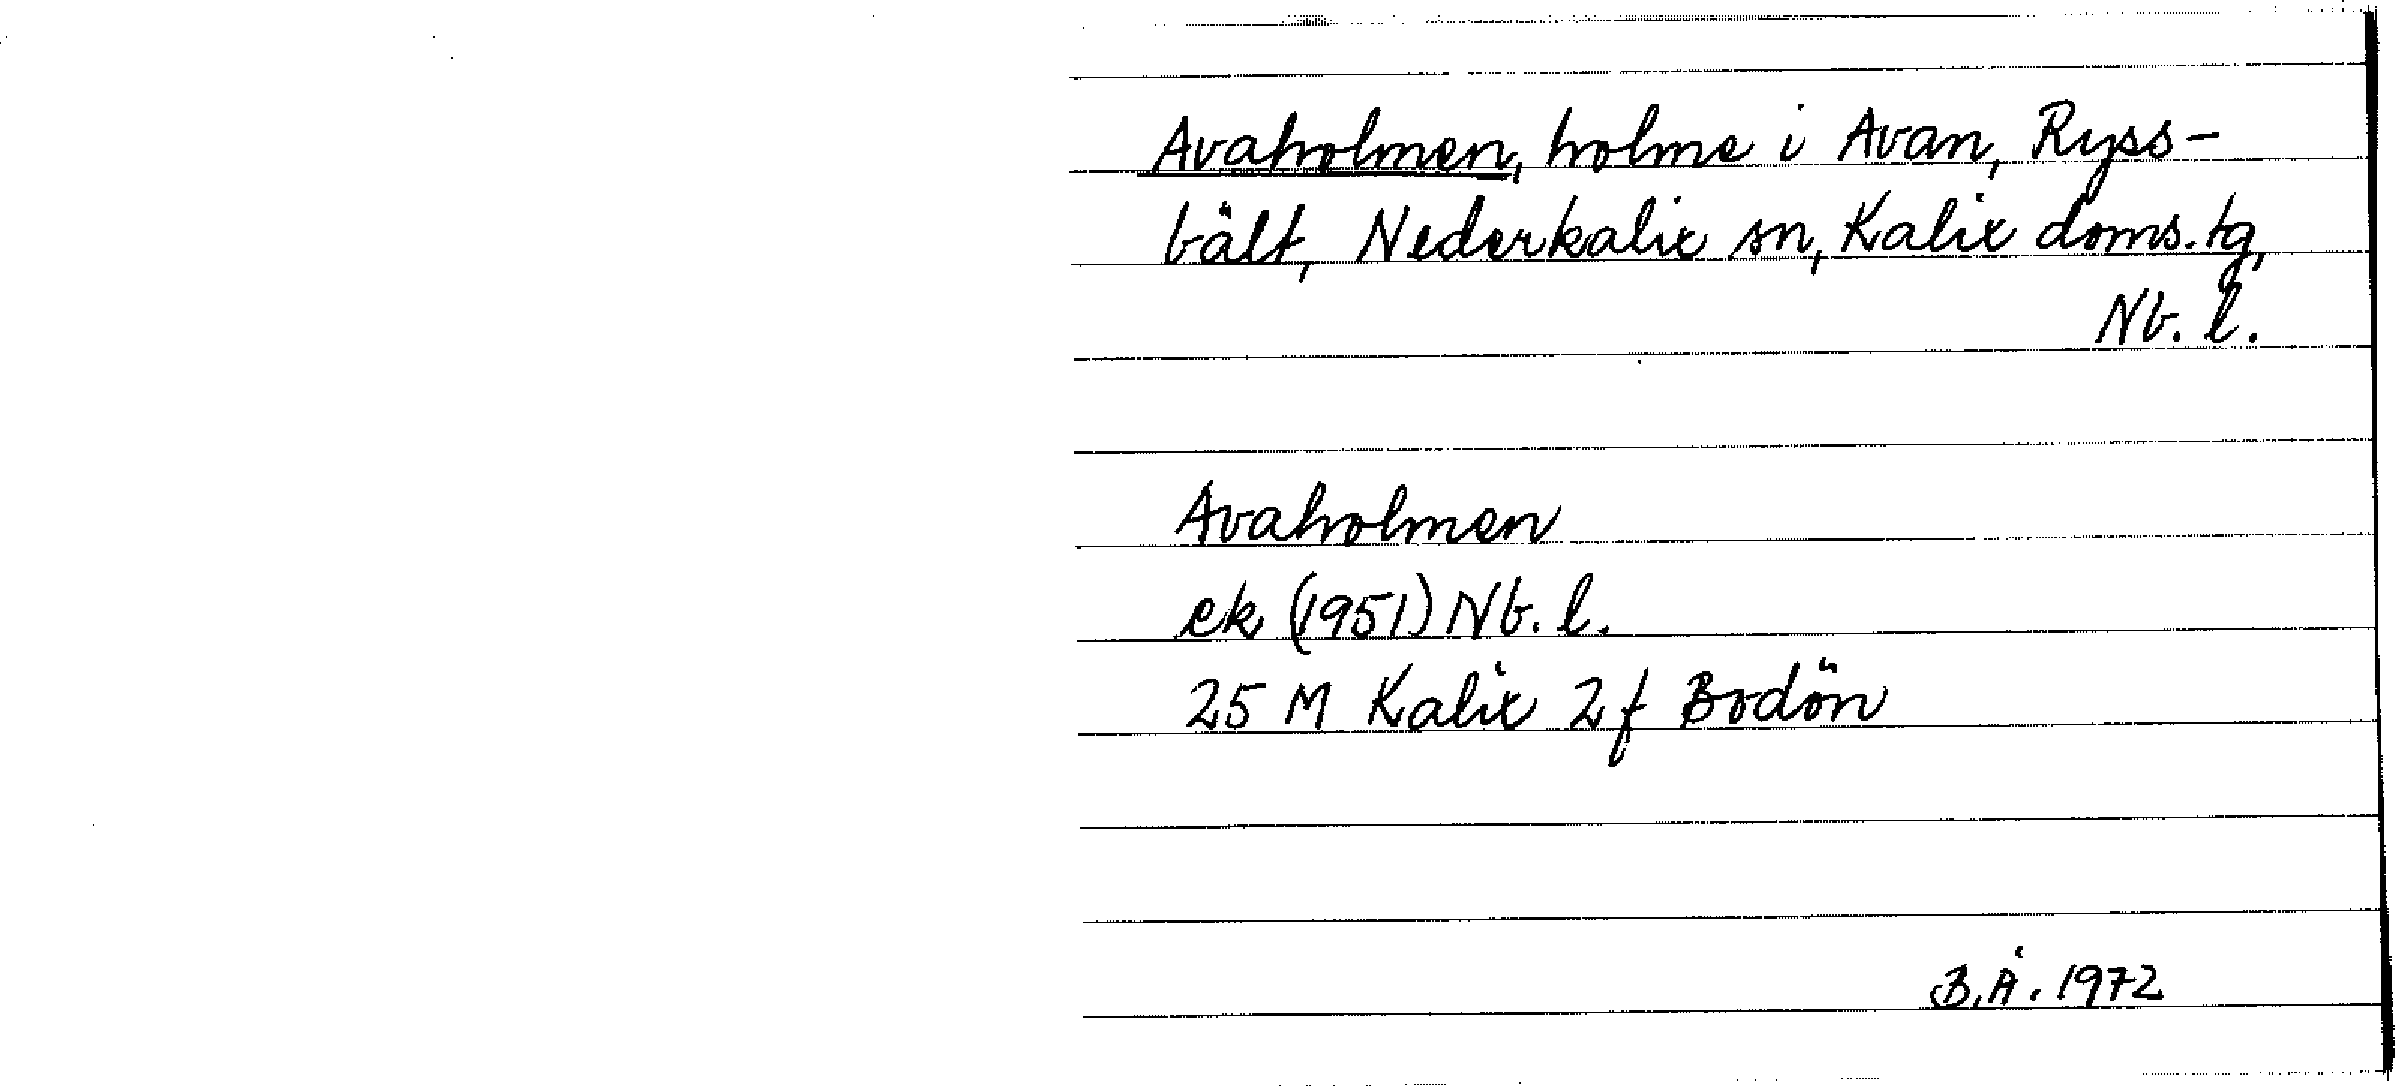 Avaholmen, holme i Avan, Ryss-
bält, Nederkalix sn, Kalix doms.tg,
Nb. l.
Avaholmen
ek (1951) Nb. l.
25 M Kalix 2f Bodön
B.Å. 1972